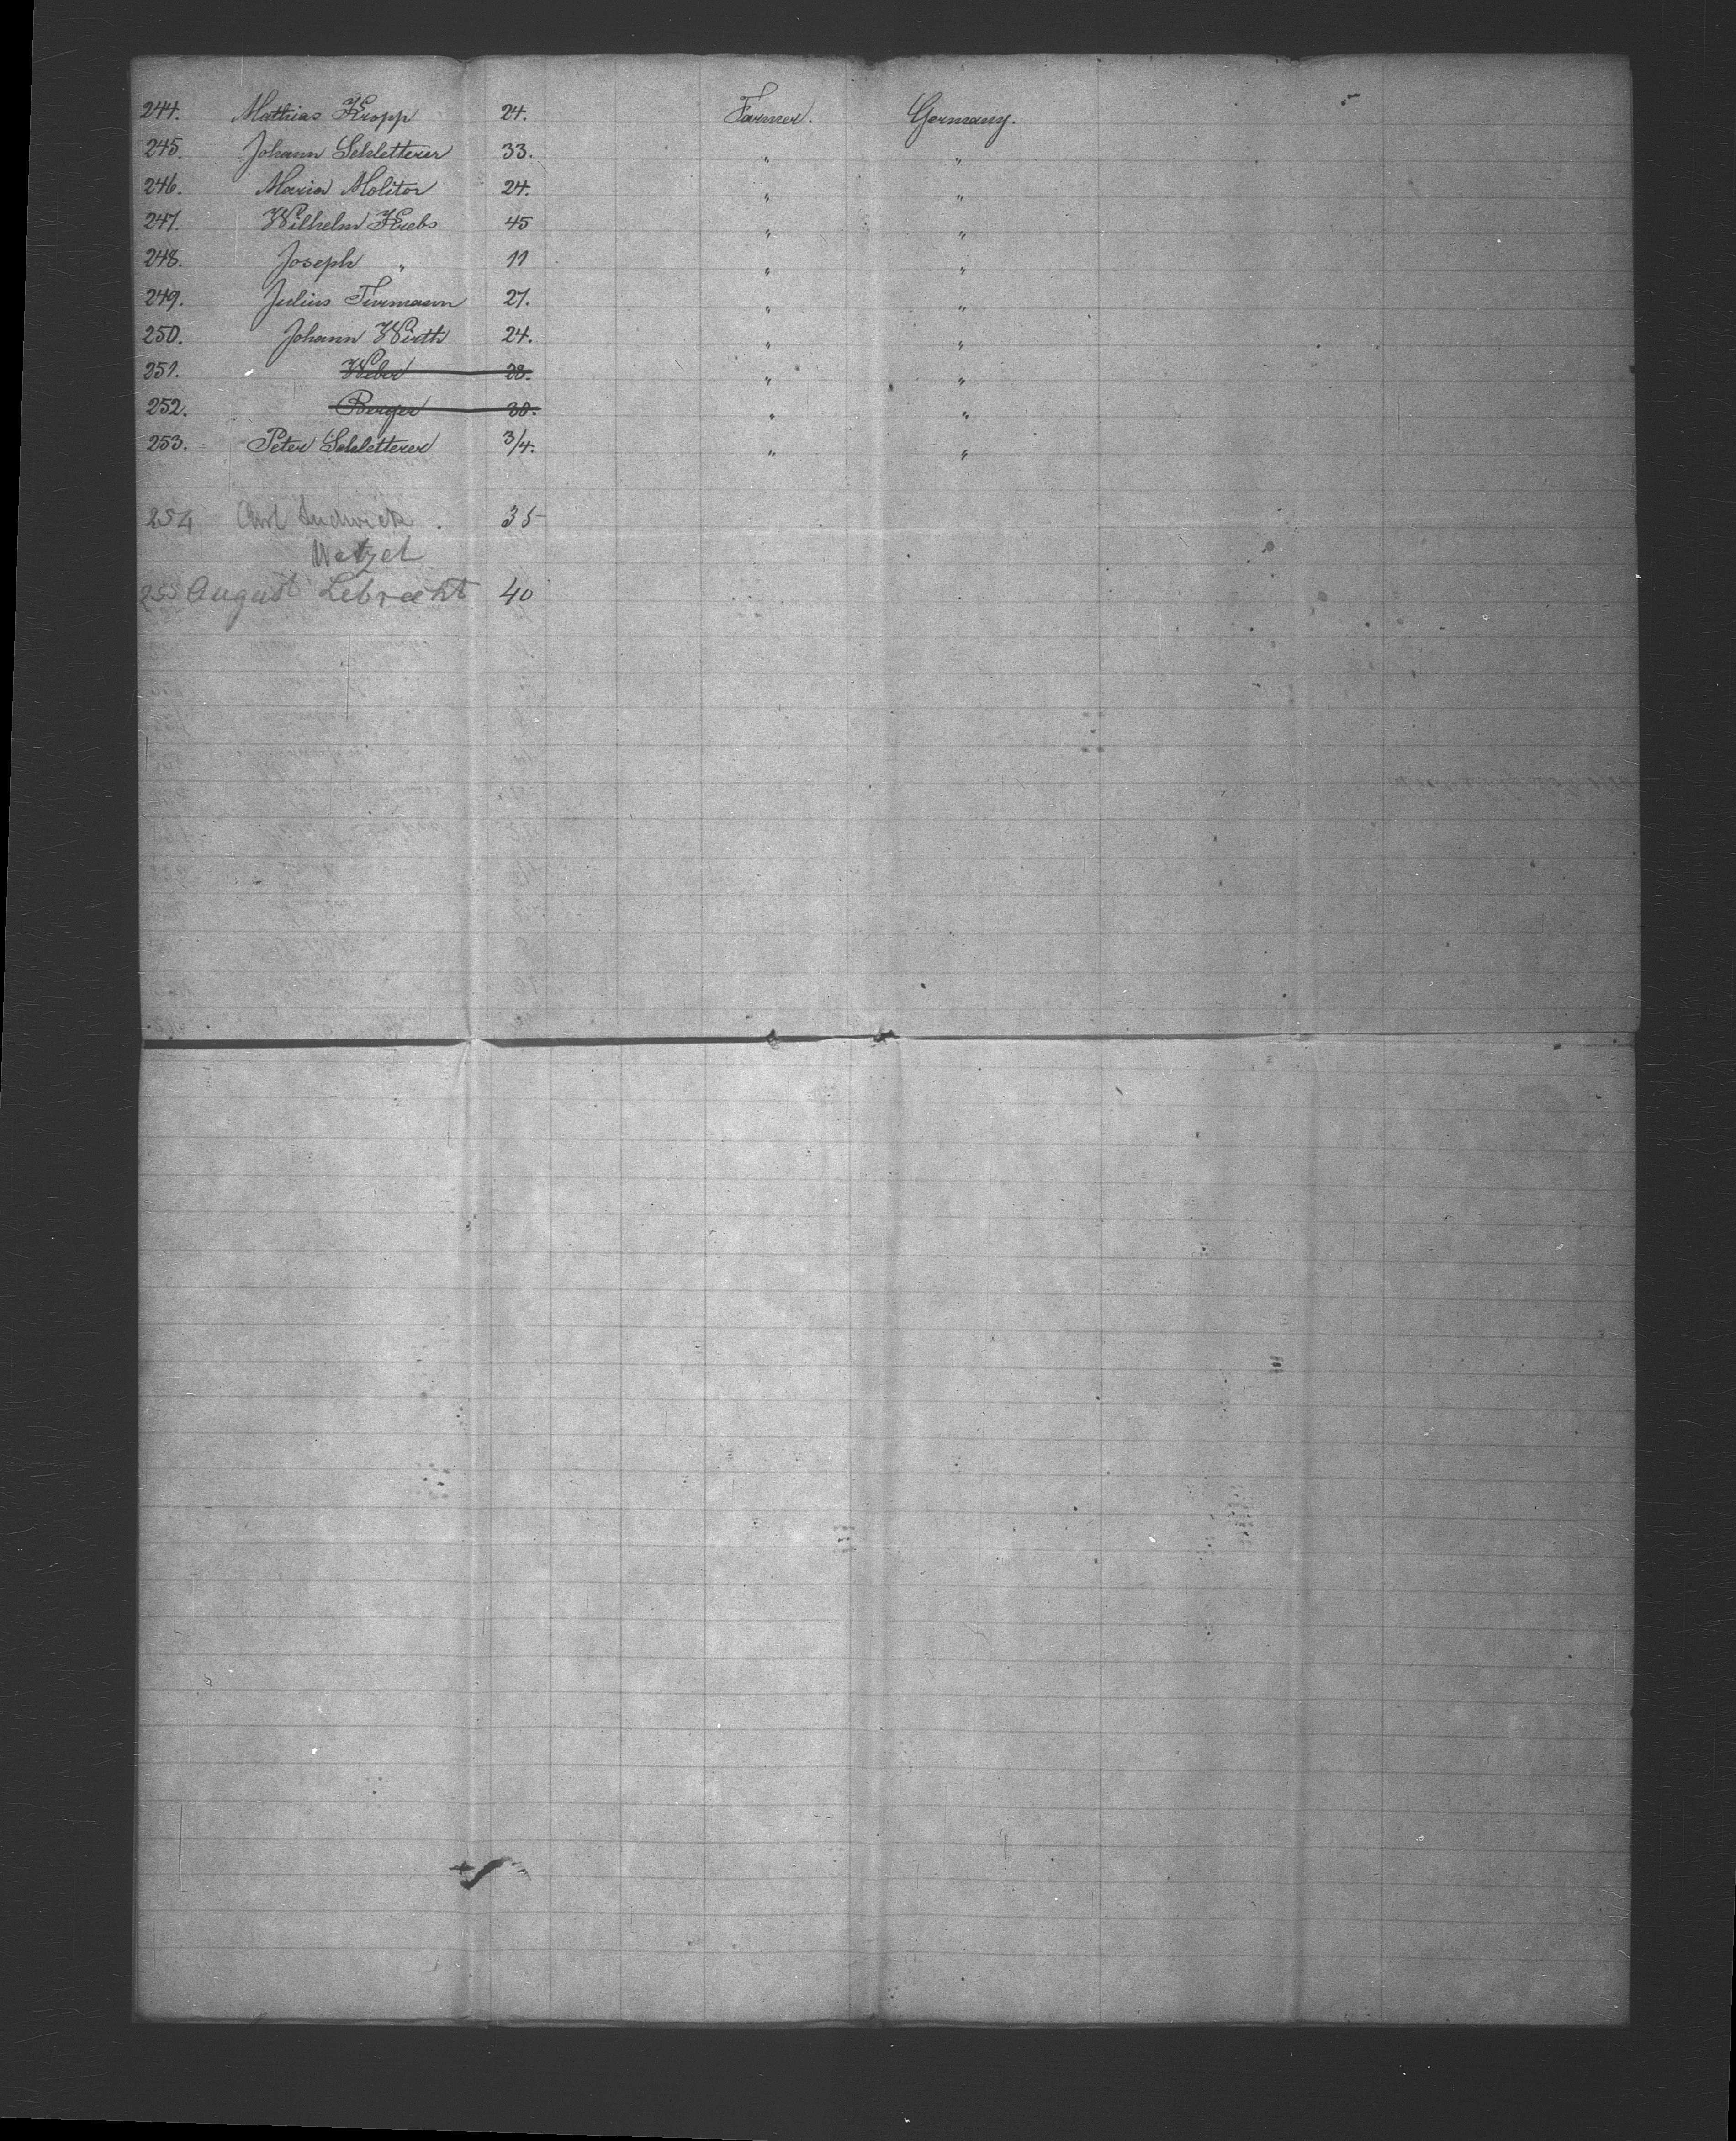 244. Mathias Kropp 24. Farmer. Germany.
245. Johann Schletterer 33. " "
246. Maria Molitor 24. " "
247. Wilhelm Krebs 45 " "
248. Joseph " 11 " "
249. Julius Furmann 27. " "
250. Johann Wirth 24. " "
251. Weber 28. " "
252. Berger 30. " "
253. Peter Schletterer 3/4. " "
254 Carl Ludwick 35
Wetzel
255 August Lebrecht 40